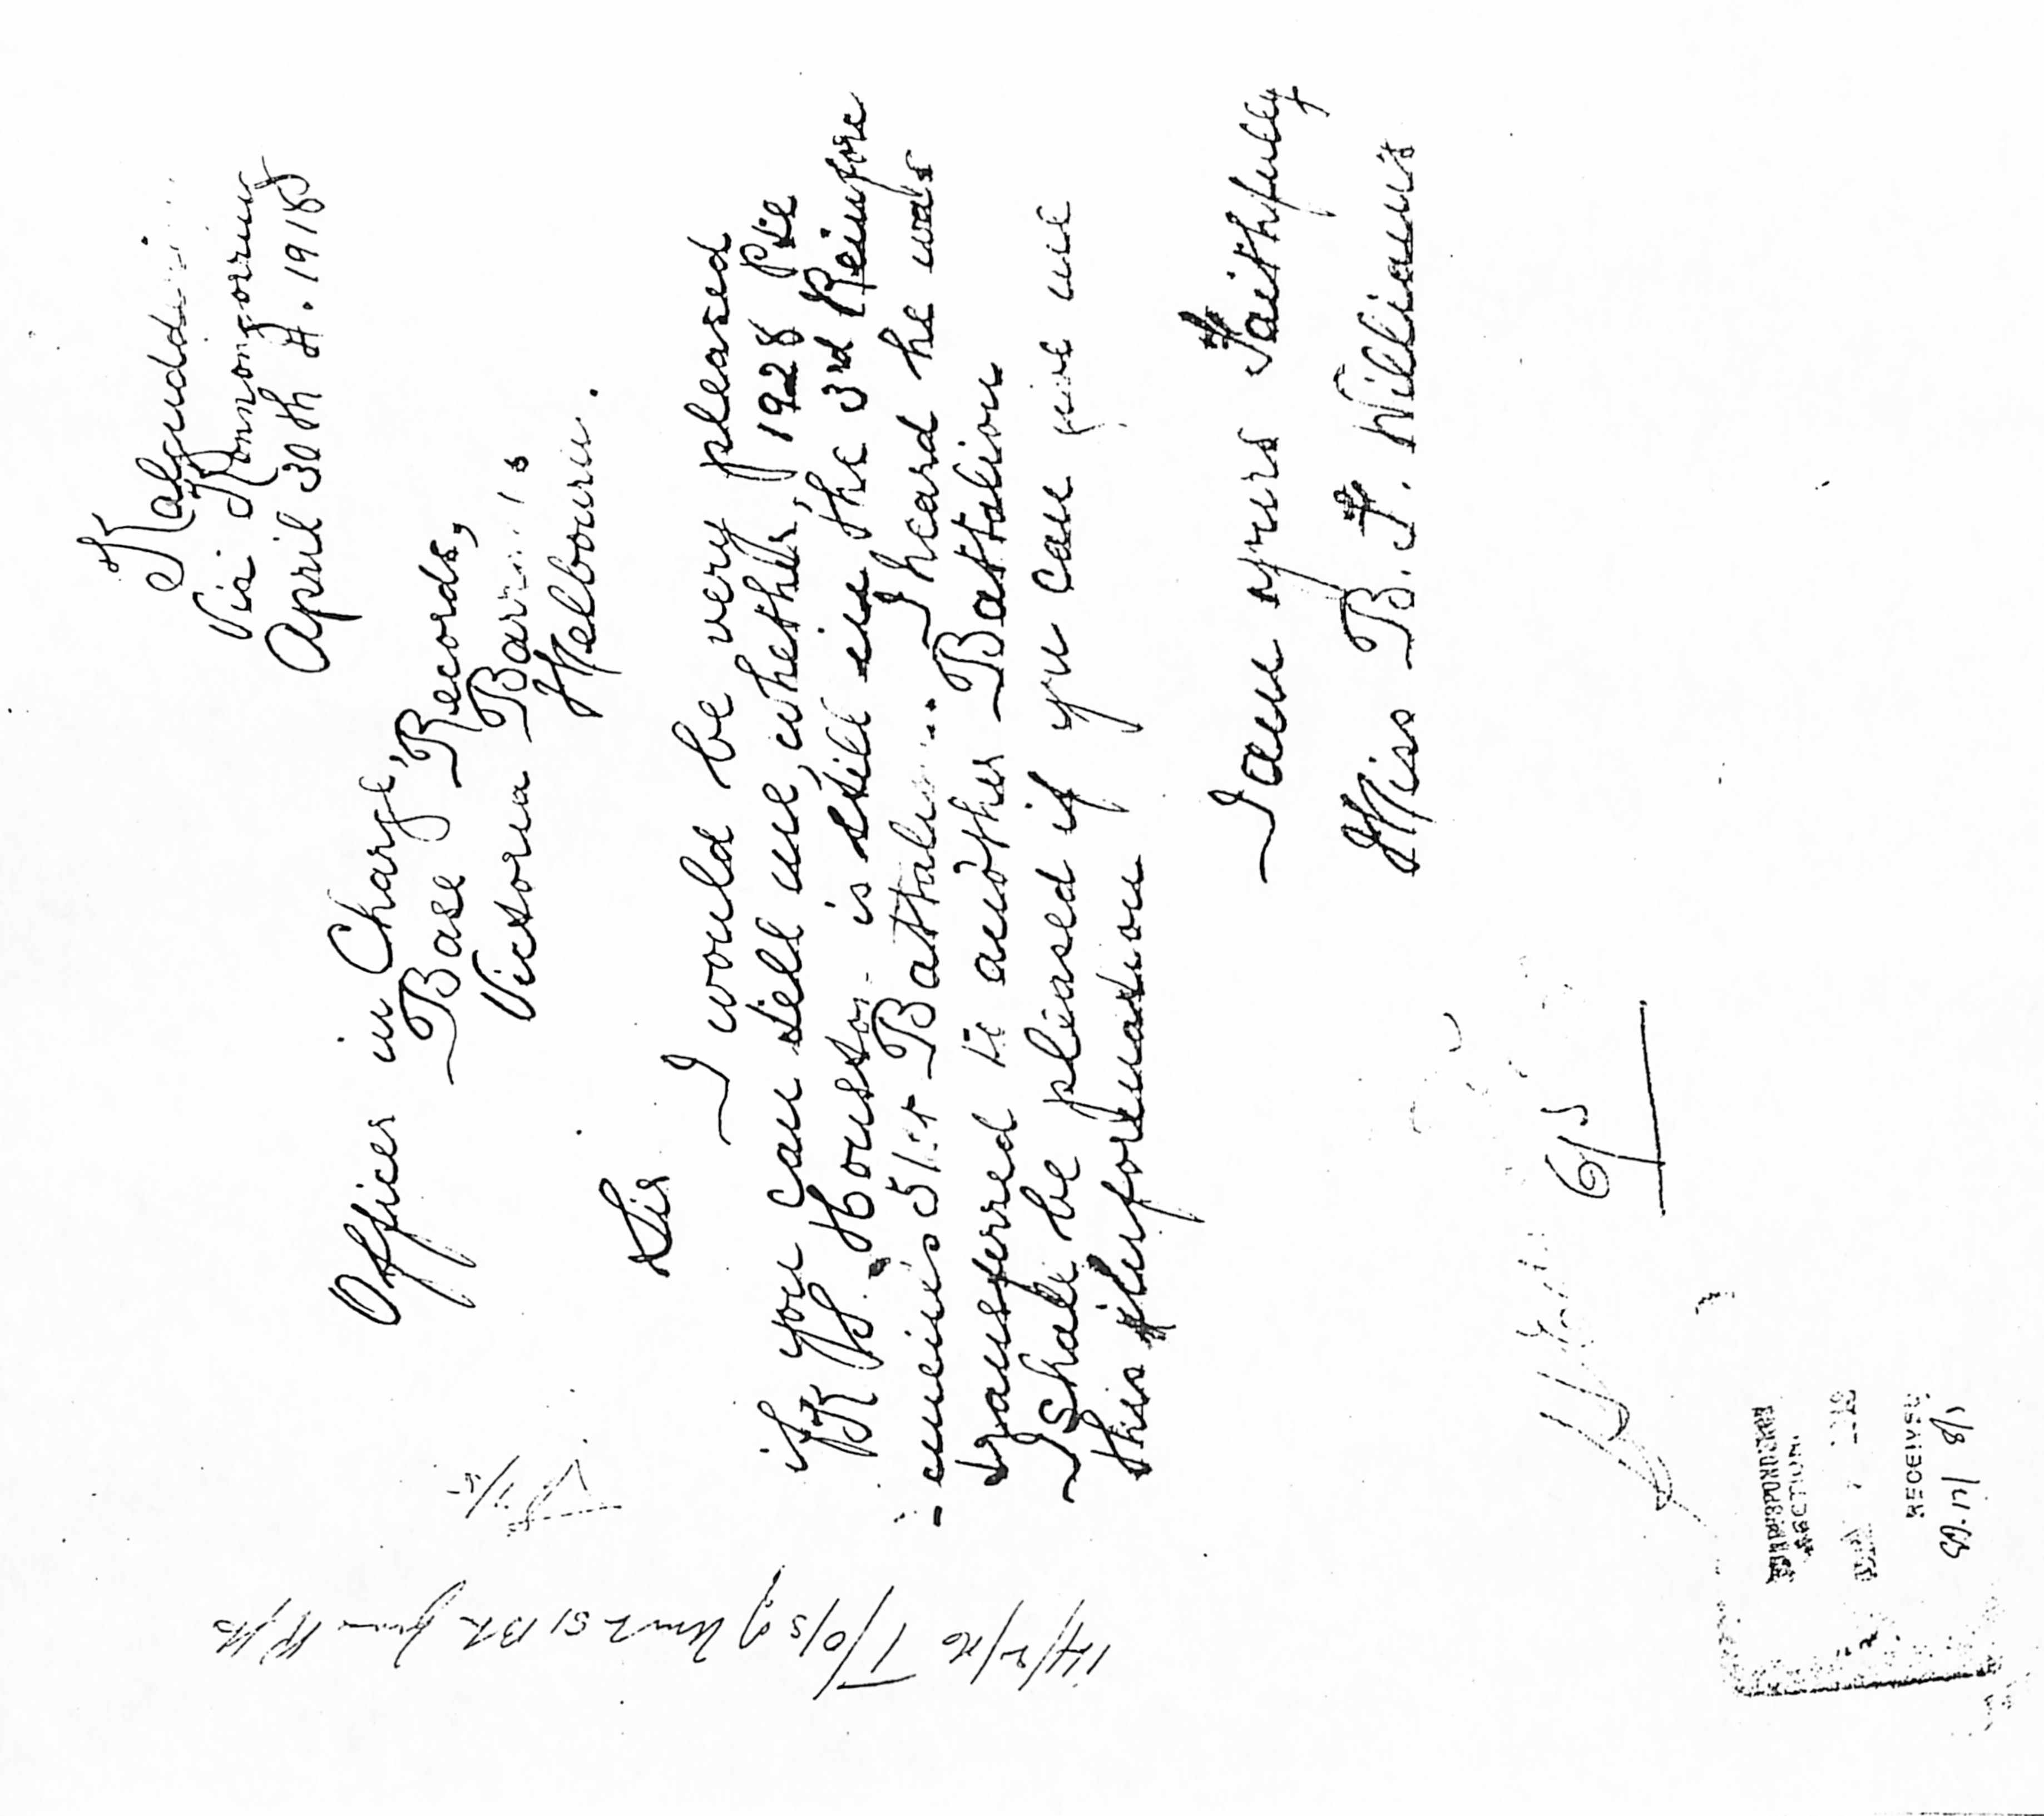 Kalguddering
Via Konnongorring
April 30th A. 1918
Officer in Charge,
Base Records,
Victoria Barracks
Melbourn.
Sir
I would be very pleased
if you can tell me, whether, 1928 Pte
K B. Houston is still in the 3rd Reinforce
-ments 51st Battalion. I heard he was
transferred to another Battalion
I shall be pleased if you can give me
this information
I am yours Faithfully
Miss B. F. Williams
14/2/16 T/O/S of
51 Bn from
6/5
CORRESPONDENCE
SECTION.
RECEIVED